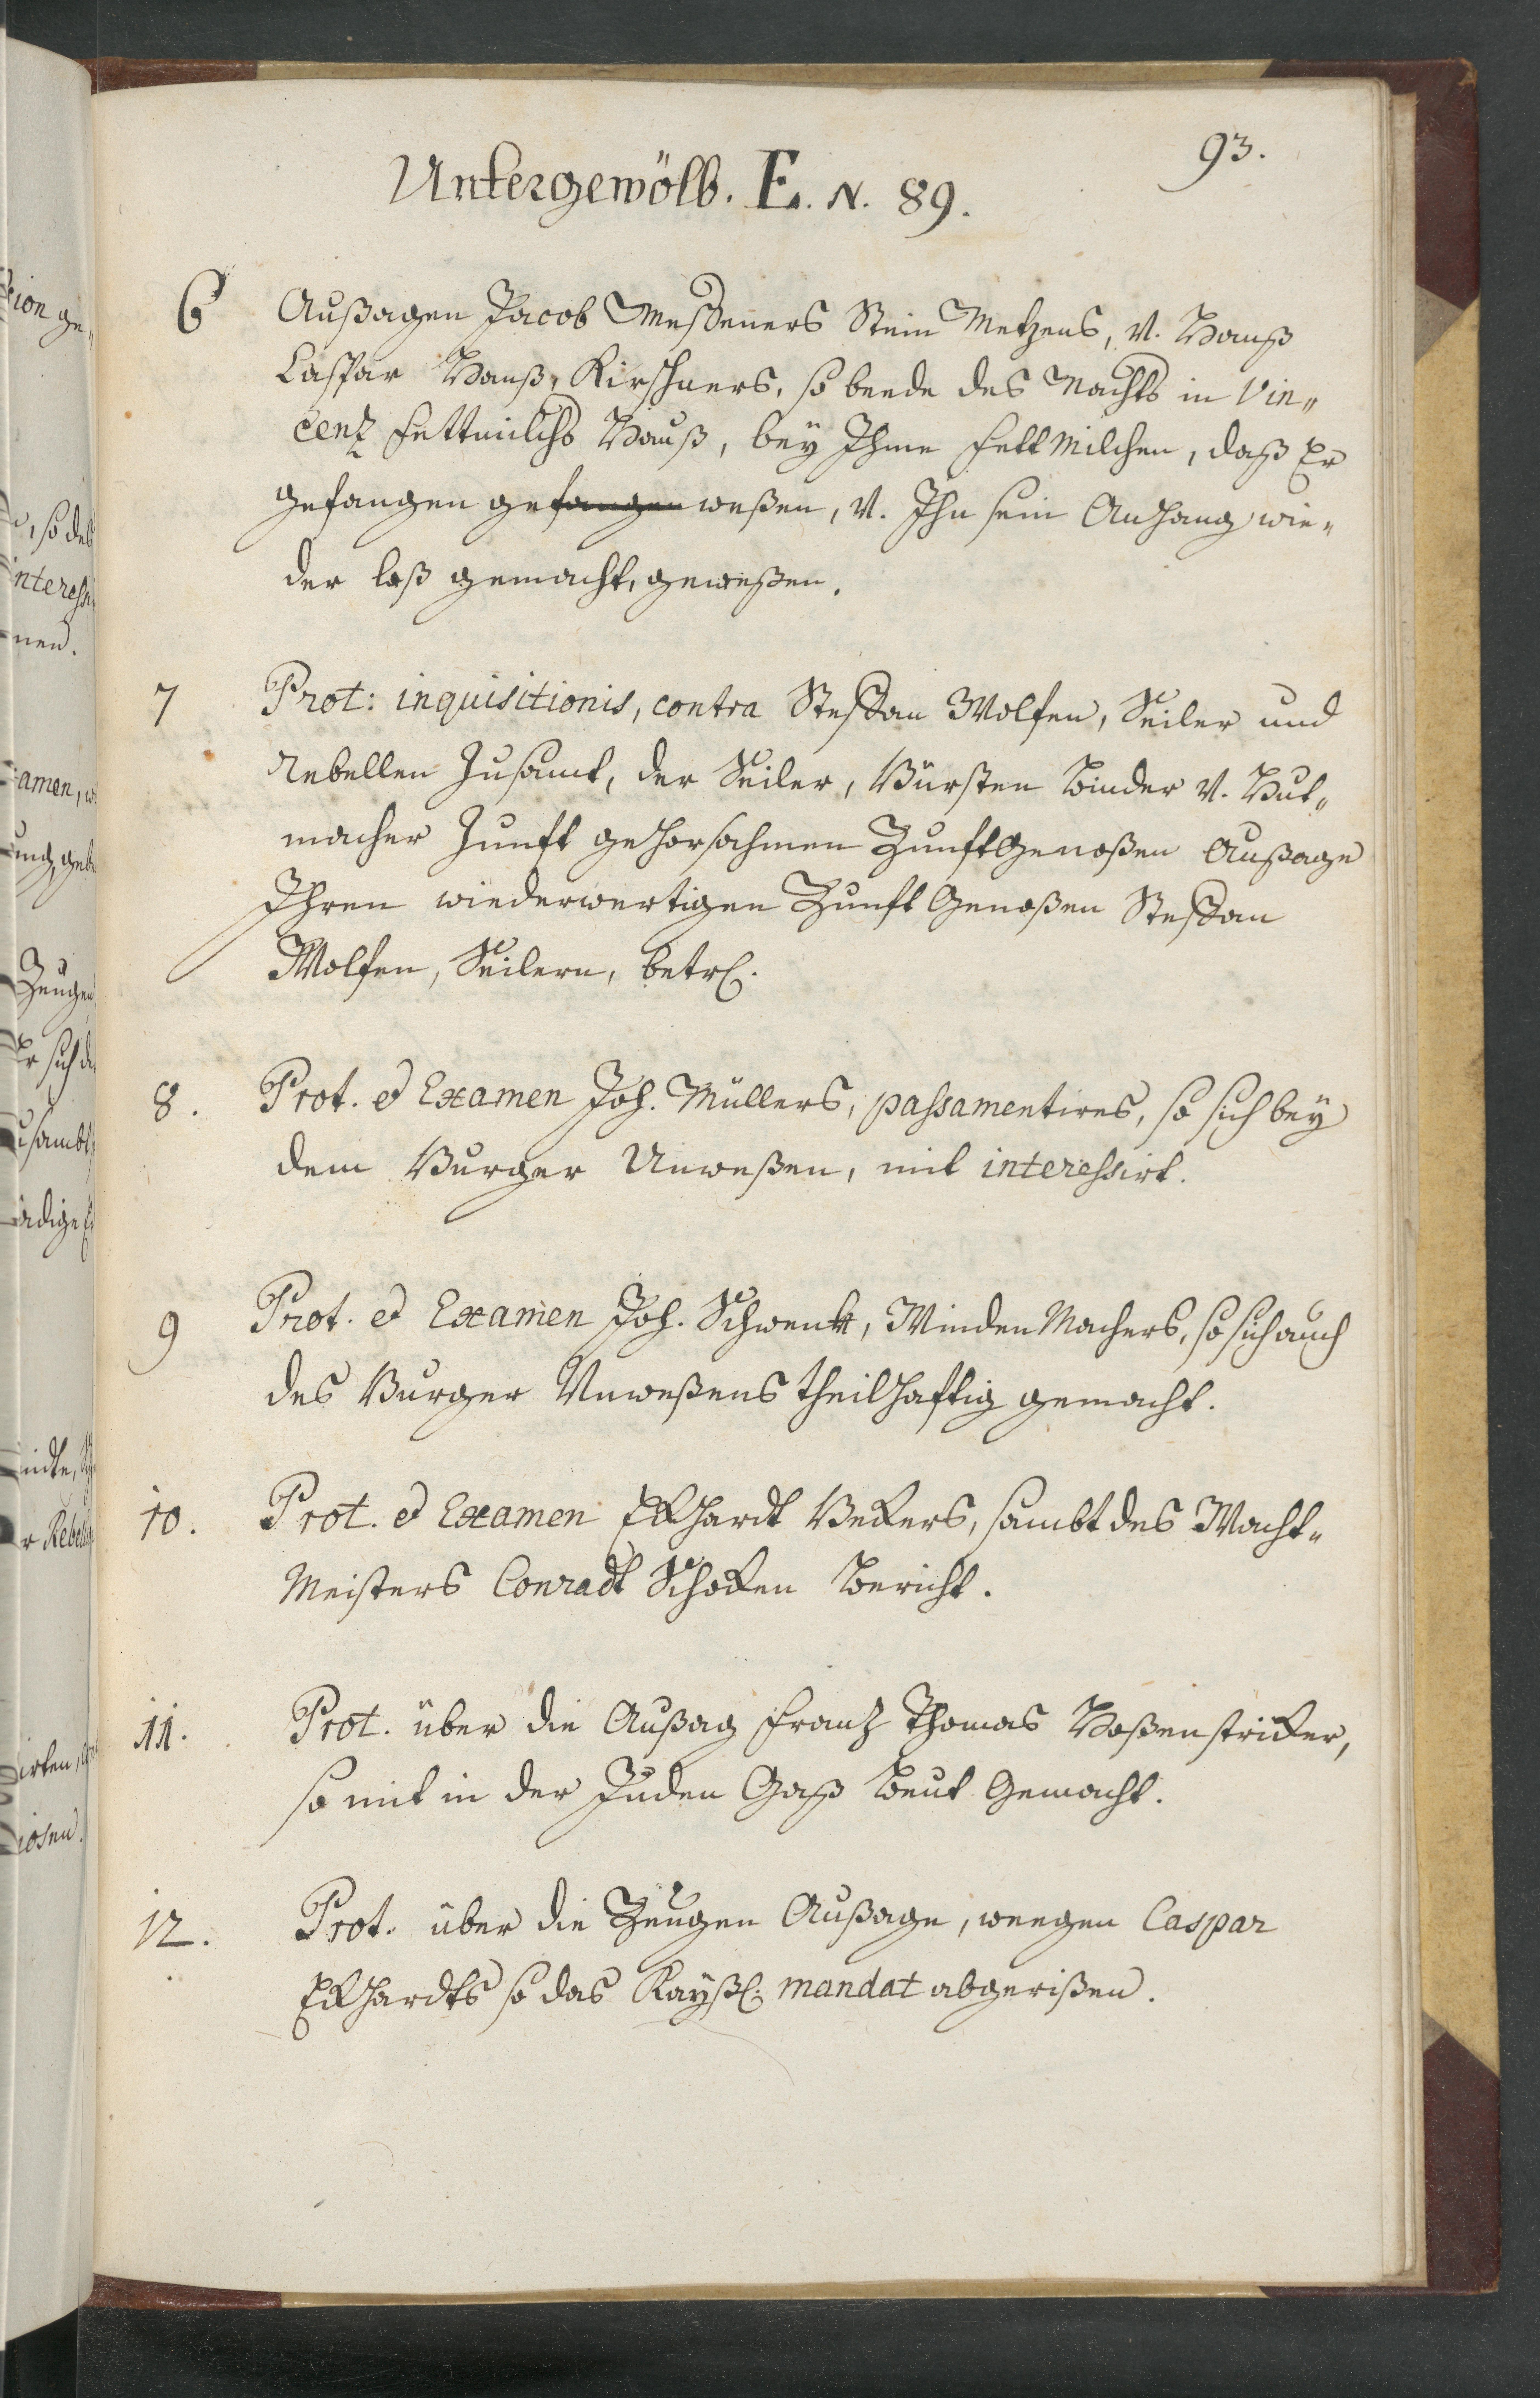 93.
Untergewölb. E. N. 89.
6 Außagen Jacob Meßeners Stein Metzens, V. Hanß
Caspar Hanß, Kirschners, so beede des Nachts in Vin„
centz Fettmilchs Hauß, bey Ihme Fettmilchen, daß Er
gefangen gefangen weßen, V. Ihn sein Anhang wie„
der loß gemacht, geweßen.
7 Prot: inquisitionis, contra Steffan Wolfen, Seiler und
Rebellen Zusamt, der Seiler, Bürsten Binder V. Hut„
macher Zunft gehorsahmen Zunftgenoßen Außage
Ihren wiederwertigen Zunft Genoßen Steffan
Wolfen, Seilern, betr.
8. Prot. et Examen Joh. Müllers, passamentires, so sich bey
dem Burger Unweßen, mit interessirt.
9 Prot. et Examen Joh. Schwenk, Winden Machers, so sich auch
des Burger Unweßens theilhaftig gemacht.
10. Prot. et Examen Eckhardt Beckers, sambt des Wacht„
Meisters Conradt Schocken Bericht.
11. Prot. über die Außag Frantz Thomas Hoßenstricker,
so mit in der Juden Gaß Beut Gemacht.
12. Prot. über die Zeugen Außage, weegen Caspar
Eckhardts so das Kayßl. mandat abgerißen.